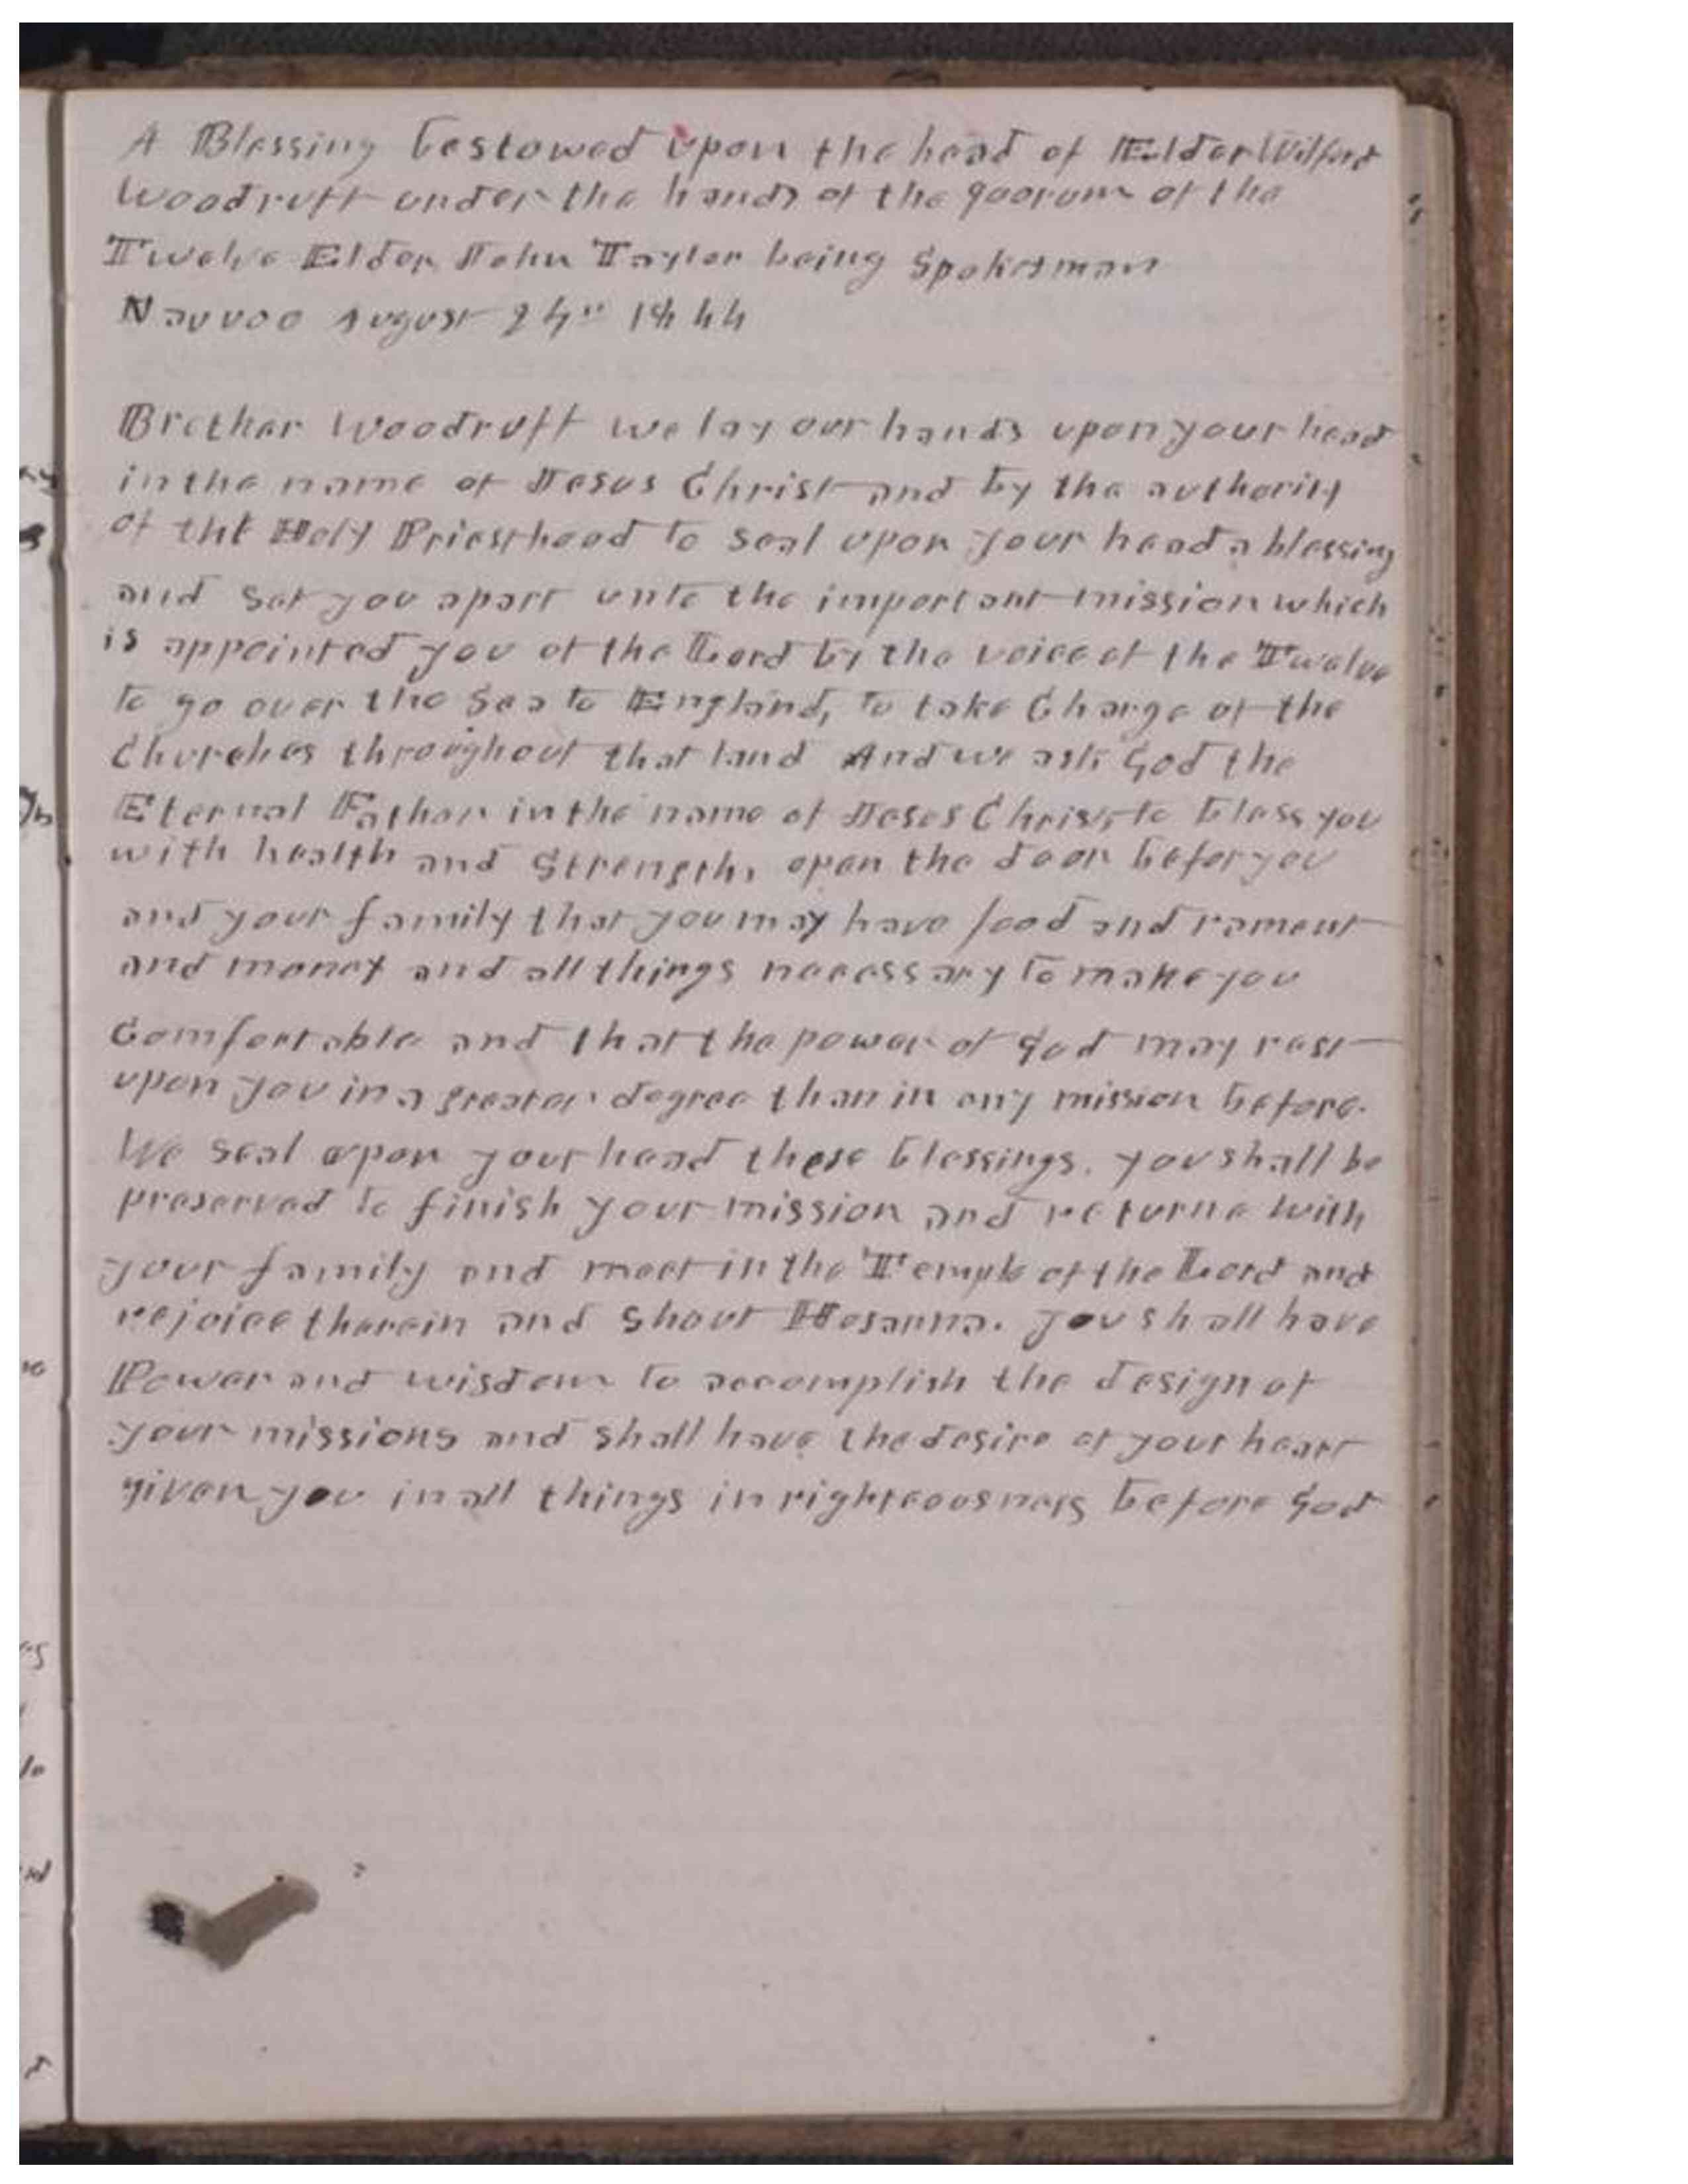 A Blessing bestowed upon the head of Elder Wilford
Woodruff under the hands of the quorum of the
Twelve Elder John Taylor being Spokesman
Nauvoo August 24th 1844
Brother Woodruff we lay our hands upon your head
in the name of Jesus Christ and by the authority
of the Holy Priesthood to seal upon your head a blessing
and set you apart unto the important mission which
is appointed you of the Lord by the voice of the Twelve
to go over the Sea to England, to take Charge of the
Churches throughout that land And we ask God the
Eternal Father in the name of Jesus Christ, to bless you
with health and Strength, open the door befor you
and your family that you may have food and rament
and money and all things necessary to make you
Comfortable and that the power of God may rest
upon you in a greater degree than in any mission before.
We seal upon your head these blessings. you shall be
preserved to finish your mission and returne with
your family and meet in the Temple of the Lord and
rejoice therein and Shout Hosanna. you shall have
Power and wisdom to accomplish the design of
your missions and shall have the desire of your heart
given you in all things in righteousness before God